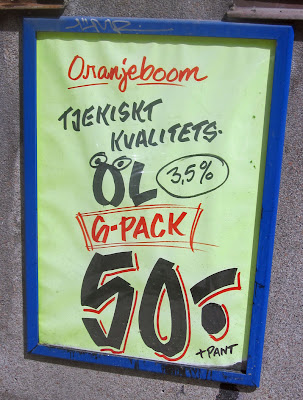 Oranjeboom
TJEKISKT
KVALITETS-
ÖL 3,5%
6-PACK
50:-
+PANT